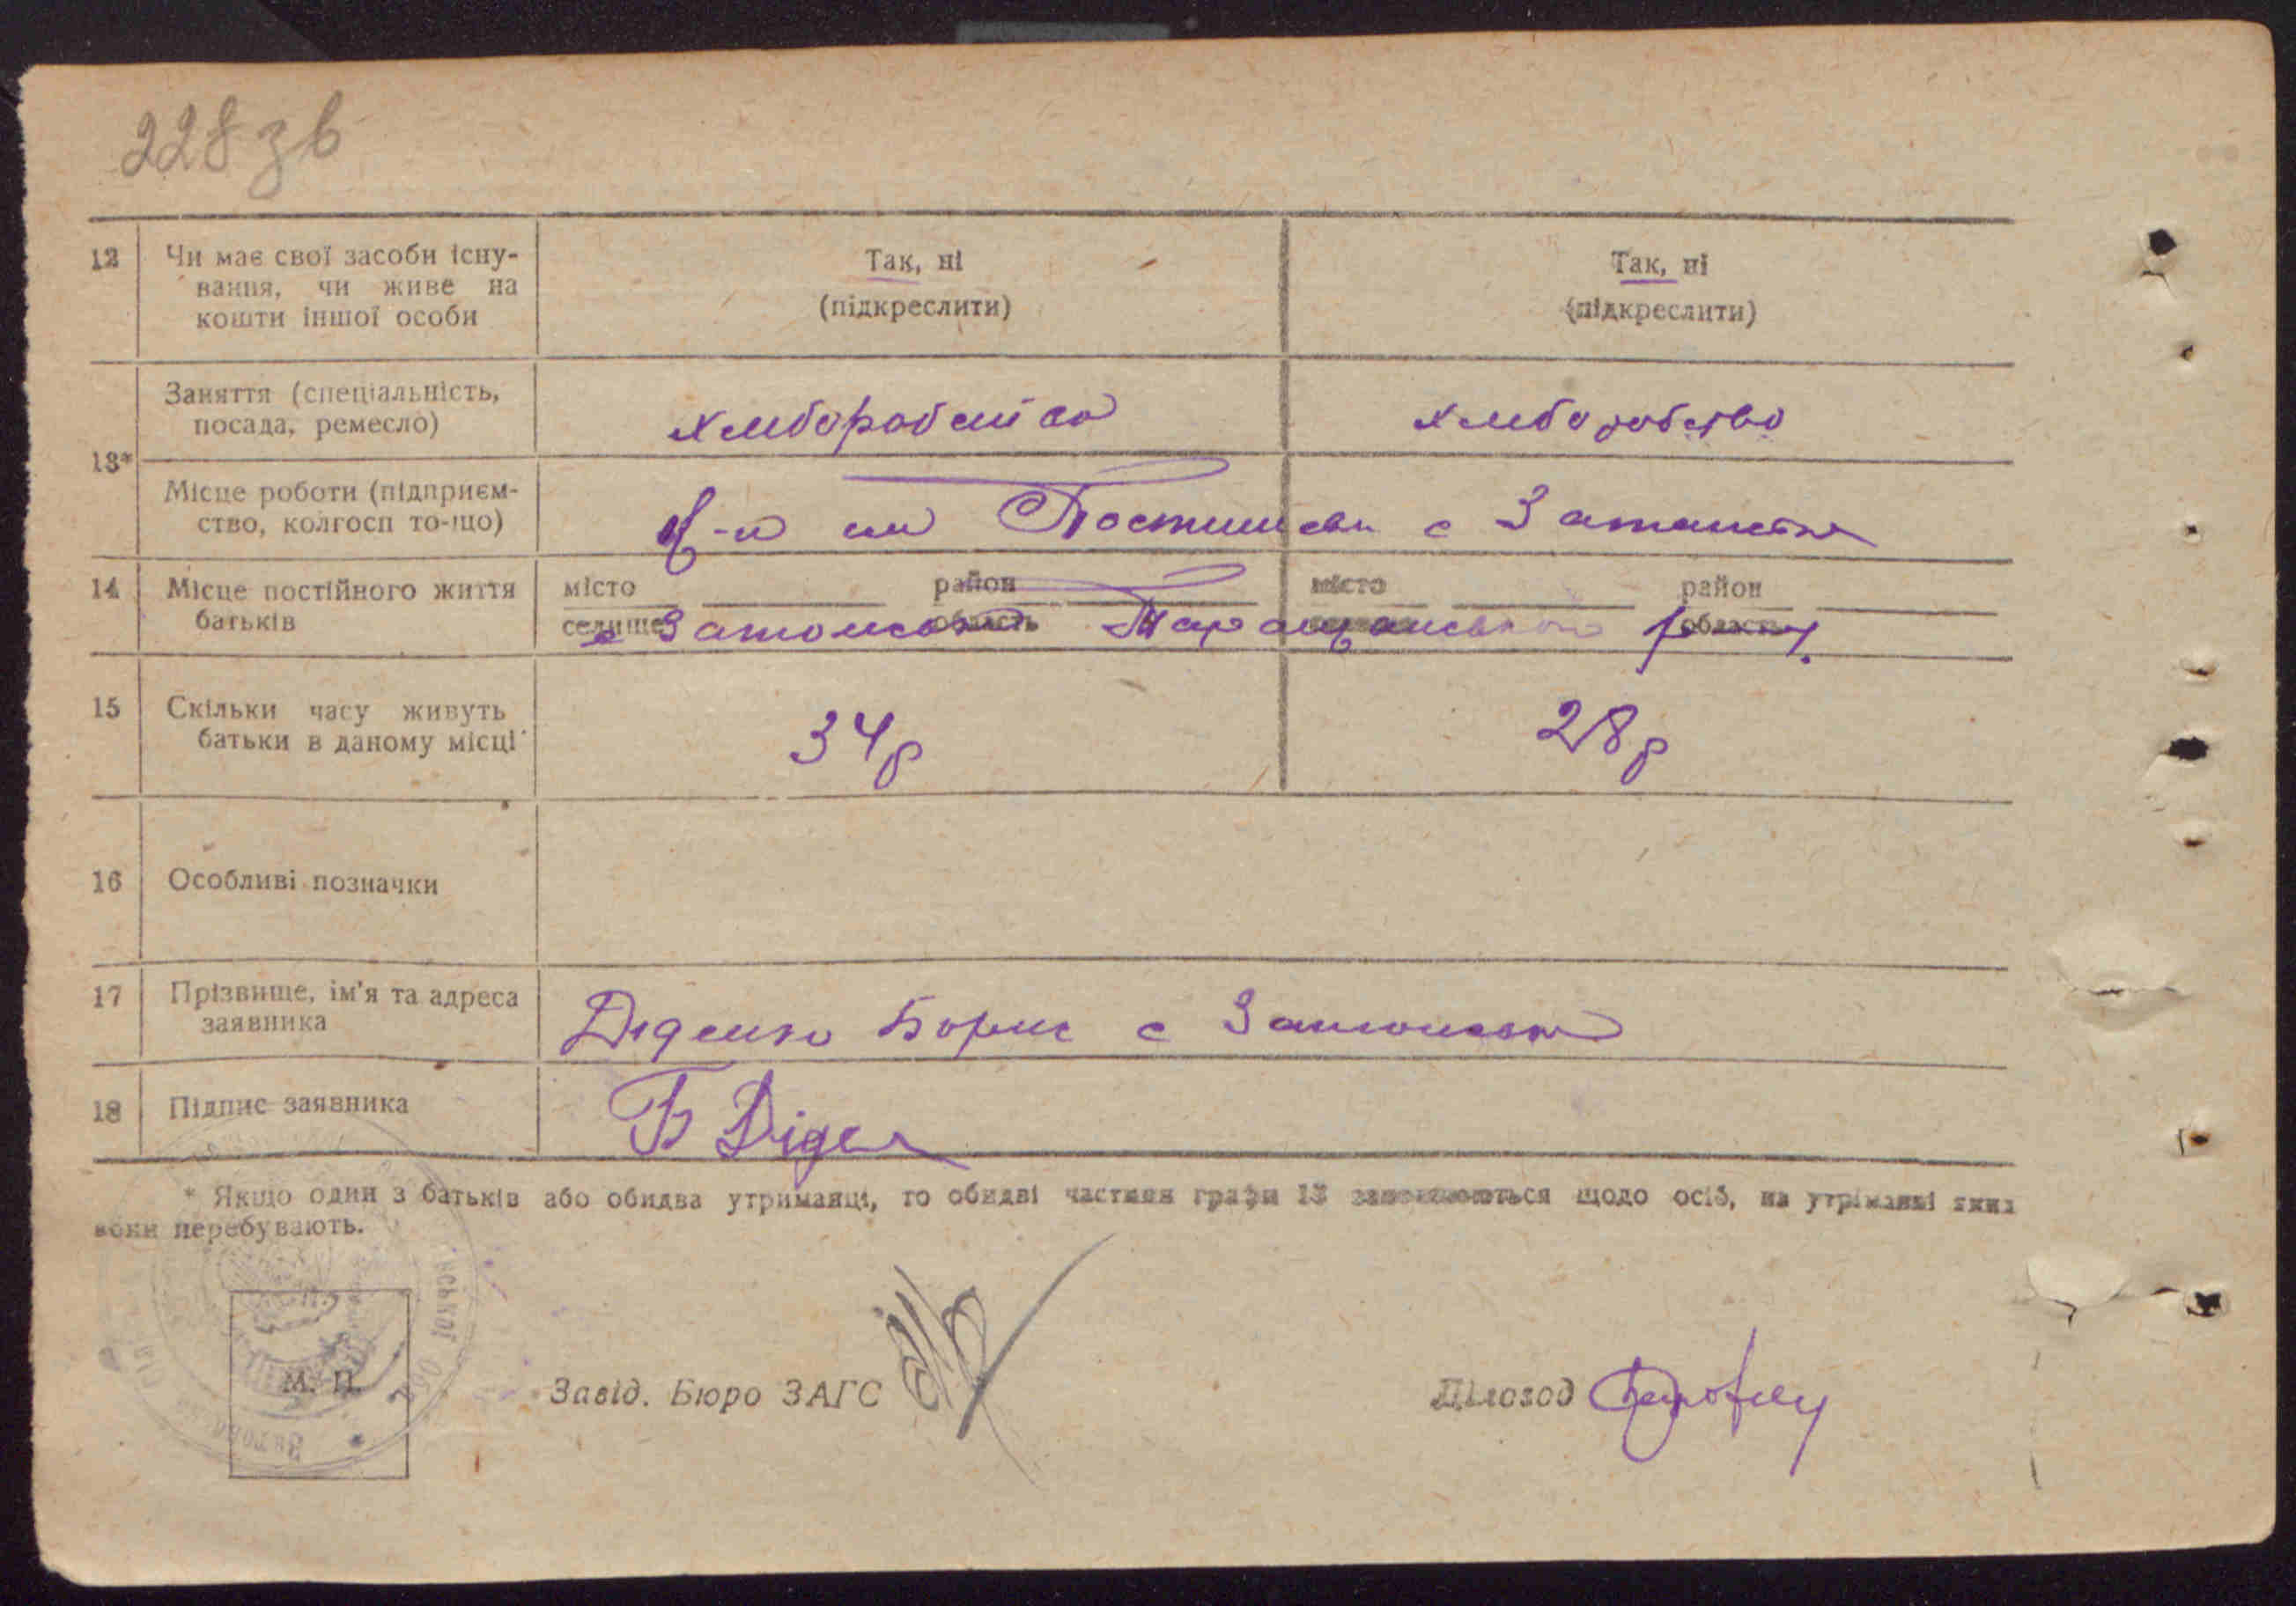 228 зв
12 Чи має свої засоби існу- Так, ні Так, ні
вання, чи живе на (підкреслити) (підкреслити)
кошти іншої особи
Заняття (спеціальність, хліборобство хліборобство
посада, ремесло)
13*
Місце роботи (підприєм- Постишева с
ство, колгосп то-що)
14 Місце постійного життя місто район місто район
батьків селище область область
с Таращанського р-ну.
15 Скільки часу живуть 34р 28р
батьки в даному місці
16 Особливі позначки
17 Прізвище, ім'я та адреса Діденко Борис с
заявника
18 Підпис заявника Б Діден
* Якщо один з батьків або обидва утриманці, то обидві частини графи 13 заповнюються щодо осіб, на утріманні яких
вони перебувають.
М. П.
Завід. Бюро ЗАГС Діловод